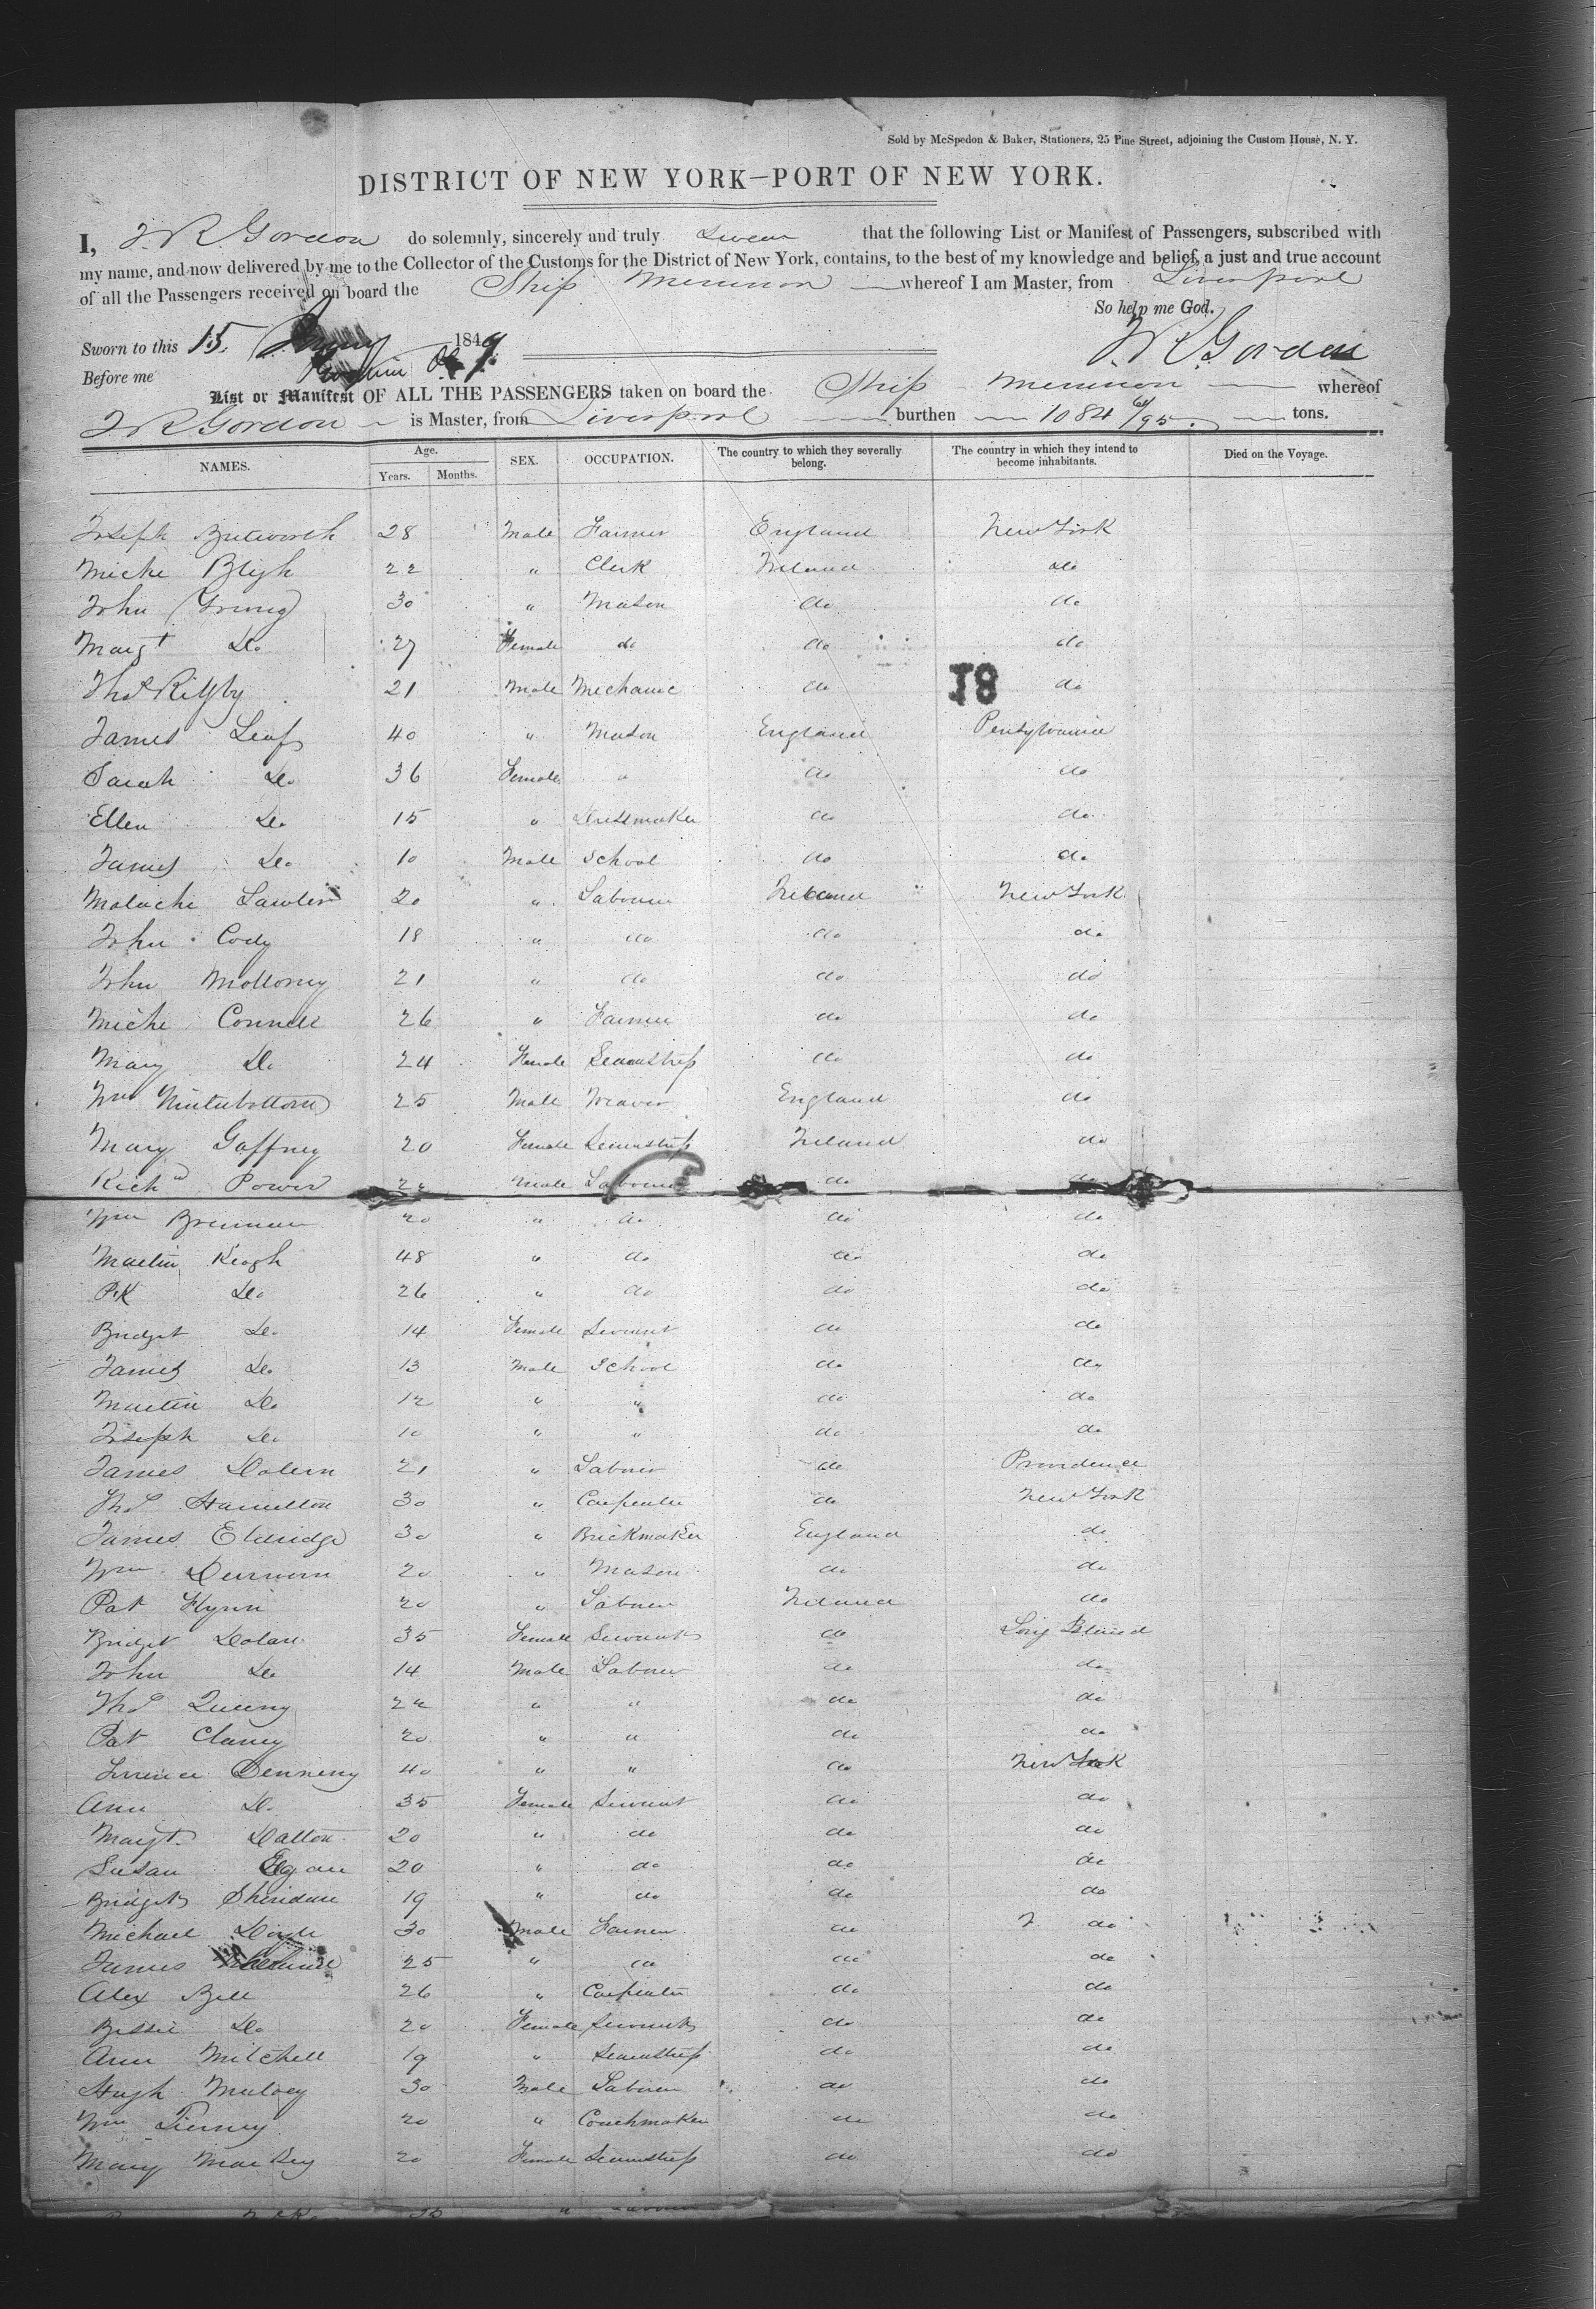 Sold by McSpedon & Baker, Stationers, 25 Pine Street, adjoining the Custom House, N. Y.
DISTRICT OF NEW YORK—PORT OF NEW YORK.
I, J. R Gordon do solemnly, sincerely and truly swear that the following List or Manifest of Passengers, subscribed with
my name, and now delivered by me to the Collector of the Customs for the District of New York, contains, to the best of my knowledge and belief, a just and true account
of all the Passengers received on board the Ship Memnon whereof I am Master, from Liverpool
So help me God.
Sworn to this 15 1849 J. R Gordon
Before me
List or Manifest OF ALL THE PASSENGERS taken on board the Ship Memnon whereof
J R Gordon is Master, from Liverpool burthen 1084 6/95. tons.
NAMES. Age. Years. Months. SEX. OCCUPATION. The country to which they severally belong. The country in which they intend to become inhabitants. Died on the Voyage.
Joseph Butworth 28 Male Farmer England New York
Miche Bligh 22 " Clerk Ireland do
John 30 " Mason do do
Margt Do 27 Female do do do
Thos Rigby 21 Male Mechanic do do
18
James Leaf 40 " Mason England Pensylvania
Sarah Do 36 Female " do do
Ellen Do 15 " Dressmaker do do
James Do 10 Male School do do
Malachi Lawler 20 " Labourer Ireland New York
John Cody 18 " do do do
John Molloney 21 " do do do
Miche Connell 26 " Farmer do do
Mary Do 24 Female Seamstress do do
Wm 25 Male Weaver England do
Mary Gaffney 20 Female Seamstress Ireland do
Richd Power Male Labourer do do
Wm Brennan 20 " do do do
Martin Keogh 48 " do do do
Pk Do 26 " do do do
Bridget Do 14 Female Servant do do
James Do 13 Male School do do
Martin Do 12 " " do do
Joseph Do 10 " " do do
James 21 " Labourer do Providence
Thos Hamilton 30 " Carpenter do New York
James Eldridge 30 " Brickmaker England do
Wm 20 " Mason do do
Pat Flynn 20 " Labourer Ireland do
Bridget Dolan 35 Female Servant do Long Island
John Do 14 Male Labourer do do
Thos Queeny " " do do
Pat Clancy 20 " " do do
Terrence Denneny 40 " " do New York
Ann Do 35 Female Servant do do
Margt Dalton 20 " do do do
Susan Egan 20 " do do do
Bridget Sheridan 19 " do do do
Michael Doyle 30 Male Farmer do do
James 25 " do do do
Alex Bell 26 " Carpenter do do
Bessie Do 20 Female Servant do do
Ann Mitchell 19 " Seamstress do do
Hugh Mulvey 30 Male Labourer do do
Wm Tierney 20 " Coachmaker do do
Mary Mackey 20 Female Seamstress do do